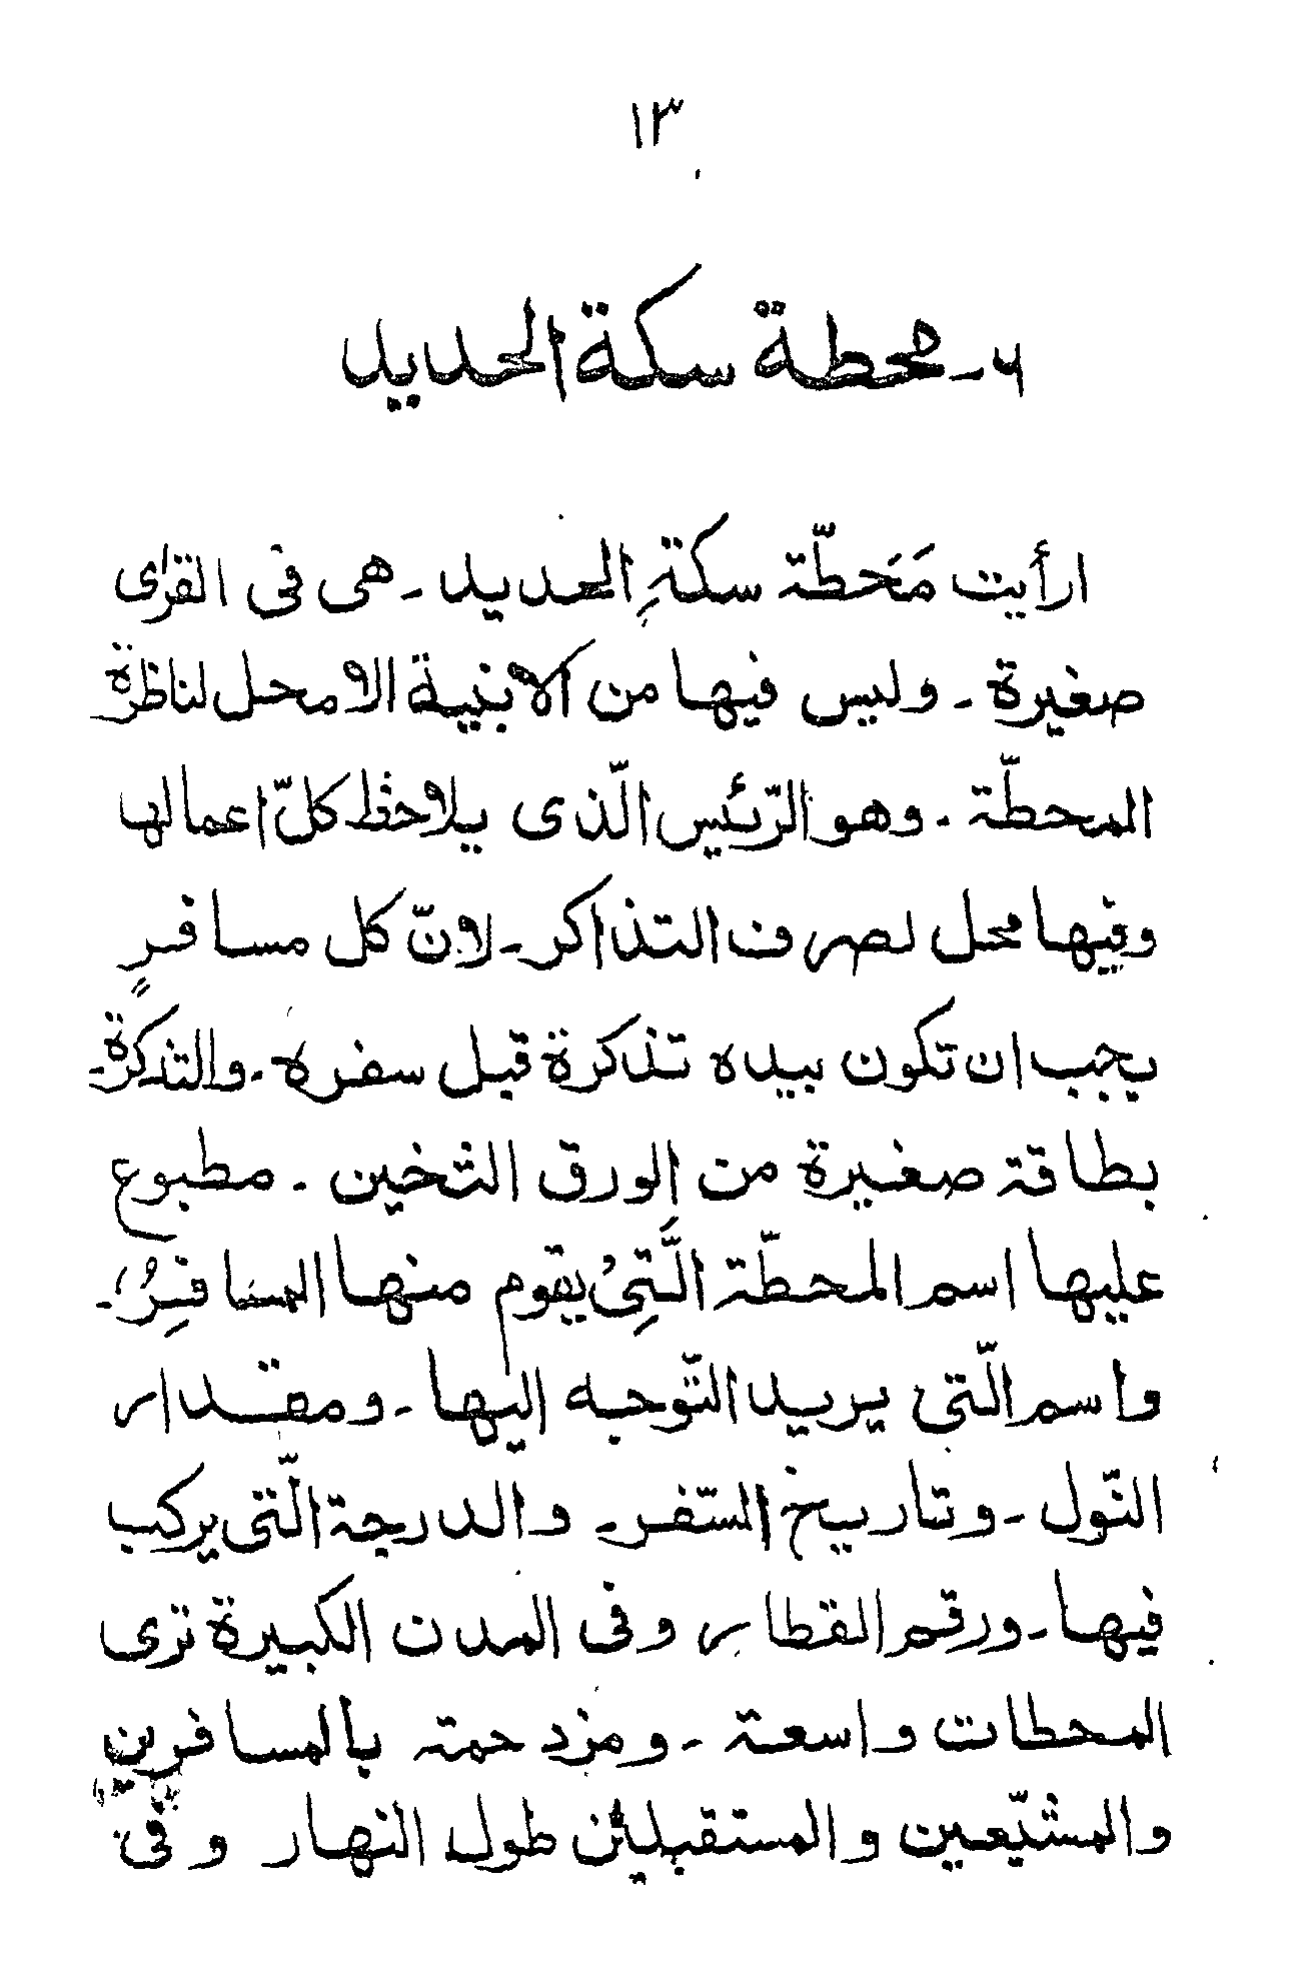 ١٣
٦ - محطة سكة الحديد
ارأيت مَحَطّة سكةِ الحديد - هى فى القرى
صغيرة - وليس فيها من الابنية الا محل لناظرة
المحطّة - وهو الرّئيس الّذى يلاحظ كلّ اعمالها
وفيها محل لصرف التذاكر - لانّ كل مسافرٍ
يجب ان تكون بيده تذكرة قبل سفره - والتذكرة -
بطاقة صغيرة من الورق الثخين - مطبوع
عليها اسم المحطّة الَّتِى يقوم منها المسافِرُ -
واسم الّتى يريد التّوجه اليها - ومقدار
النّول - وتاريخ السّفر - والدرجة الّتى يركب
فيها - ورقم القطار وفى المدن الكبيرة ترى
المحطات واسعة - ومزدحمة بالمسافرين
والمشيّعين والمستقبلين طول النهار وفى